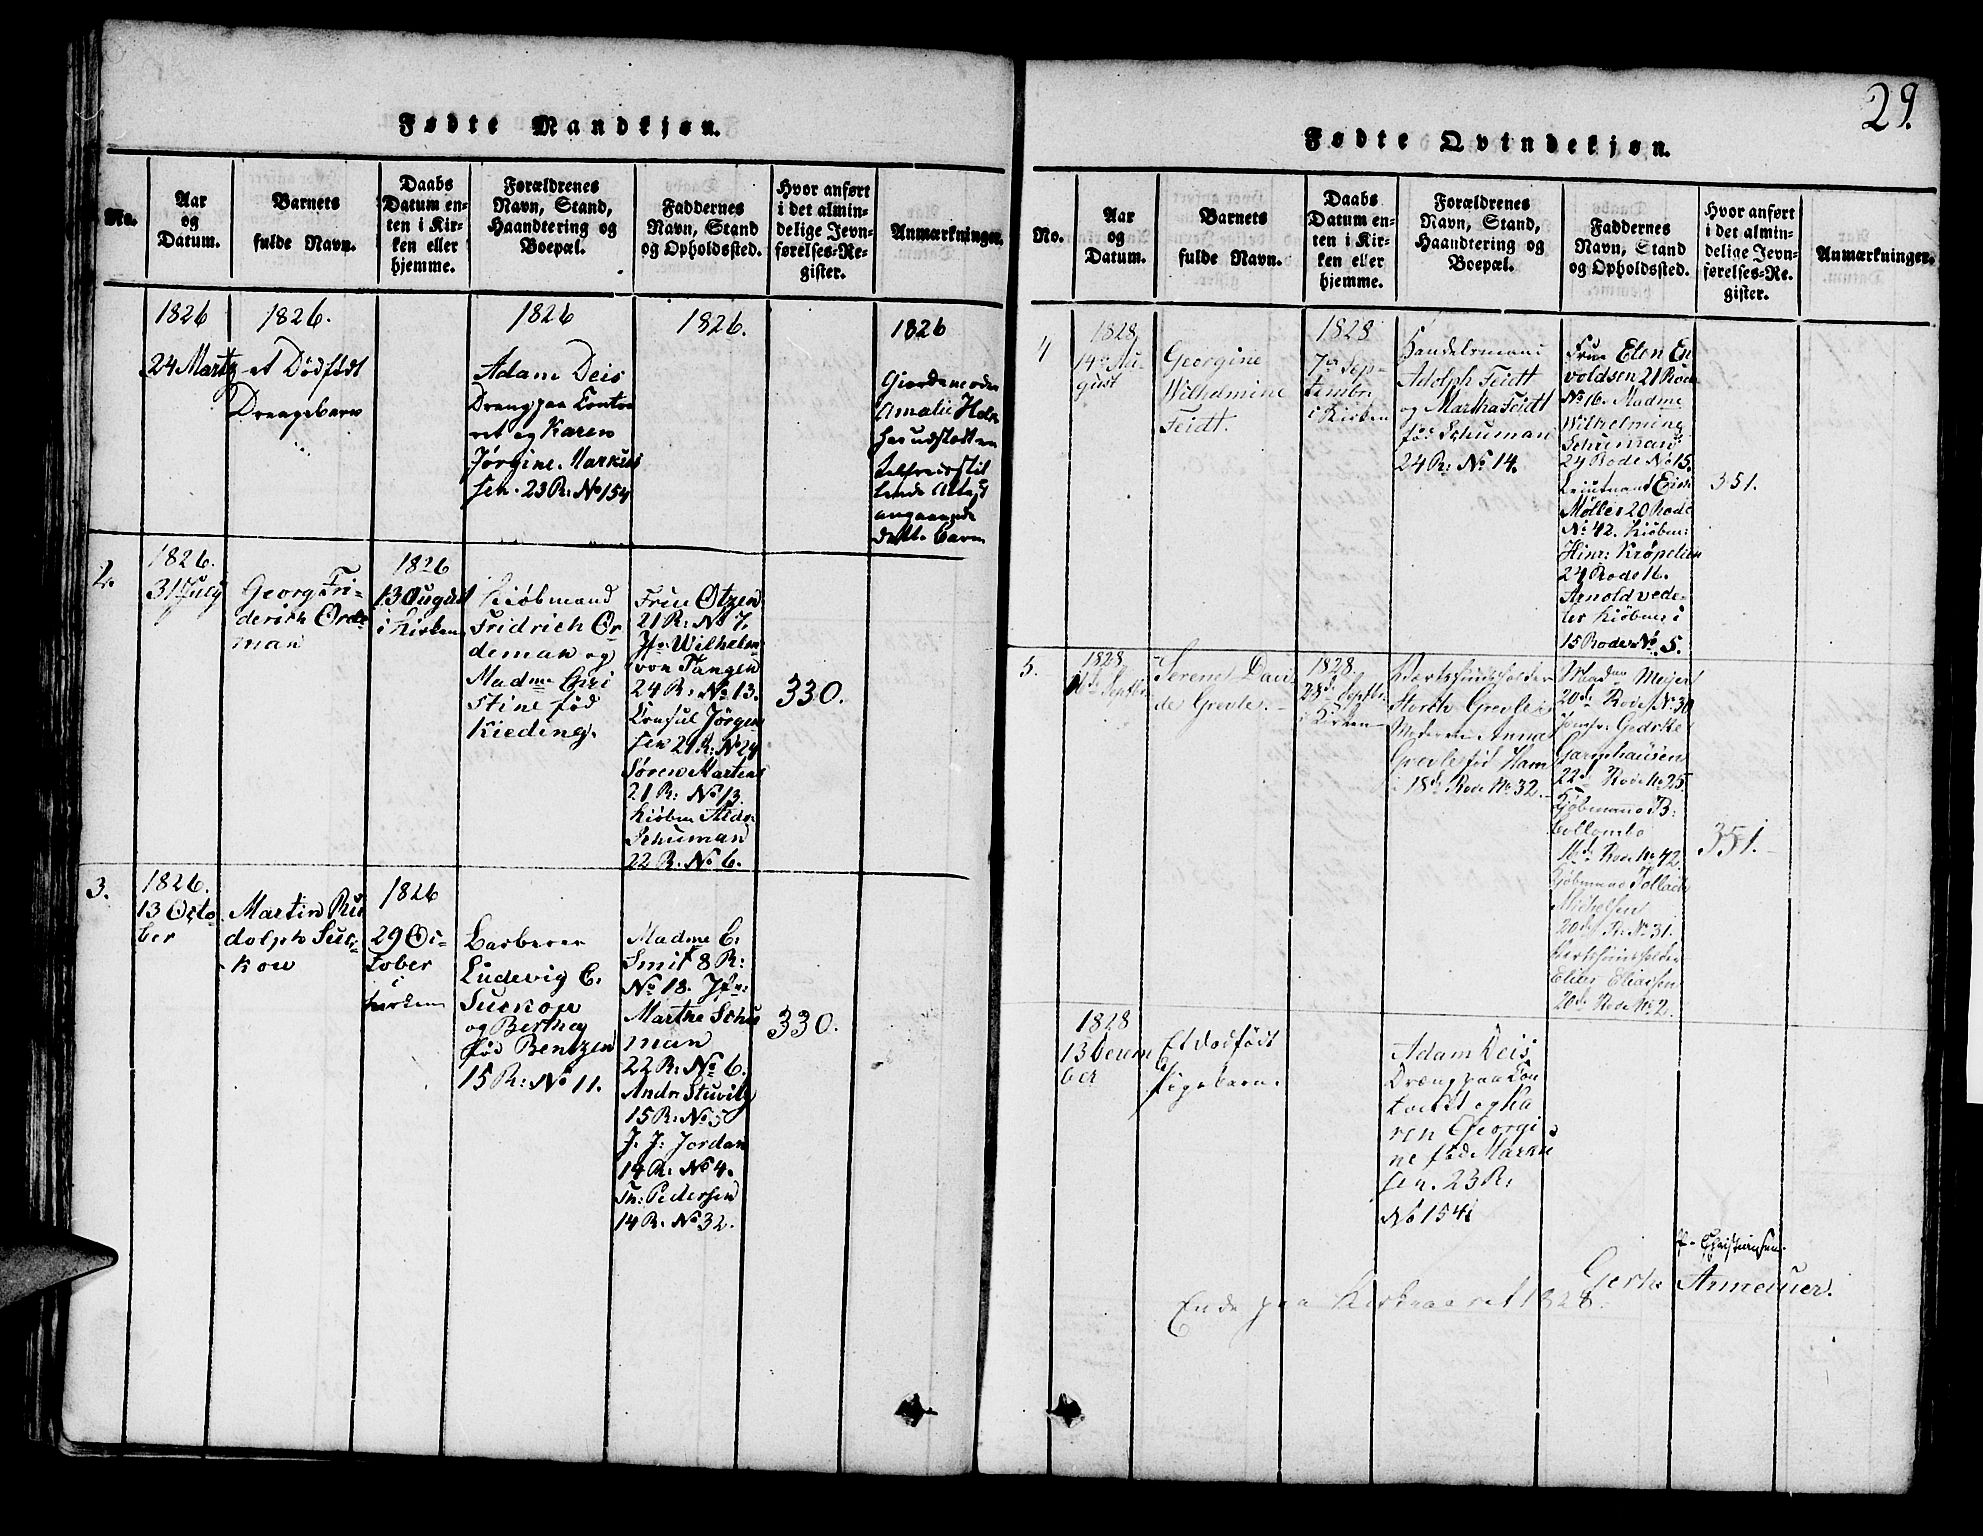 Fødte Mandkjøn.
No.
Aar
og
Datum.
Barnets
fulde Navn.
Daabs
Datum en-
ten i Kir-
ken eller
hjemme.
Forældrenes
Navn, Stand,
Haandtering og
Boepæl.
Faddernes
Navn, Stand
og Opholdssted.
Hvor anført
i det almin-
delige Jevn-
førelses-Re-
gister.
Anmærkninger.
1826
24 Martz
1826.
et Dødfødt
Drengebarn
1826
Adam Deis
Dreng paa Contoi
ret og Karen
Jørgine Markus
sen. 23 R: No 154
1826.
1826
Giordemoder
Amalie Holk
har udstedt en
tilfredsstil
lende Attest
angaaende
dette barn
2.
1826.
31 July
Georg Fri-
derich Orde
man
1826
13 August
i Kirken
Kiøbmand
Fridrich Or
deman og
Madme Chri
stine fød
Kieding.
Frue Otzen
21 R: No 7.
Jfr Wilhelm
von Tangen
24 R: No 13.
Consul Jørgen
sen 21 R: No 24
Søren Martens
21 R: No 13.
Kiøbm
Schuman
22 R. No 6.
330.
3.
1826.
13 Octo
ber
Martin Ru
dolph Suc-
kow
1826
29 Oc-
tober
i
kirken
Barberer
Ludevig C.
Suckow
og Bertha
fød Bentzen
15 R: No 11.
Madme C.
Smit 8 R:
No 18. Jfr:
Marthe Schu
man
22 R: No 6.
Andr. Stuwitz
15 R: No 5
J. J: Jordan
14 R. No 4.
Th: Pedersen
14 R. No 32.
330.
29.
Fødte Qvindekjøn.
No.
Aar
og
Datum.
Barnets
fulde Navn.
Daabs
Datum en-
ten i Kir-
ken eller
hjemme.
Forældrenes
Navn, Stand,
Haandtering og
Boepæl.
Faddernes
Navn, Stand
og Opholdssted.
Hvor anført
i det almin-
delige Jevn-
førelses-Re-
gister.
Anmærkninger.
4
1828
14de Au-
gust
Georgine
Wilhelmine
Feidt.
1828
7de Sep-
tember
i Kirken
Handelsmand
Adolph Feidt
og Martha Feidt
fød Schuman
24 R: No 14.
Frue Elen En
voldsen 21 Rode
No 16. Madme
Wilhelmine
Schuman
24 Rode No 15.
Leiutnant Erich
Møller 20 Rode
No 42. Kiøbm:
Hinr: Krøpelien
24 Rode 16.
Arnold vede-
ler Kiøbm: i
15 Rode No. 5.
351.
5.
1828
Septbr
Serene Davi
de Grevle.
1828.
28de Septbr
i Kirken
Vertshuusholder
Storch Grevle
Moderen Anna
Grevle fød Ham
18de Rode No 32.
Madme Meijer
20de Rode No 30
Jomfr: Gedske
Garmhausen
22de Rode No 25
Kjøbmand B:
Kjøbmand Tollach
Michelsen
20de R: No 31.
Vertshuusholder
Elias Eliassen
20de Rode No 2.
351.
1828
13 Decem
ber
Et dødfødt
Pigebarn.
Adam Deis
Dræng paa Con
toiret og Ka
ren Georgi
ne fød Marku
sen. 23 R:
No 154
P. Christensen.
Gerth Ameuer.
Ende paa Kirkeaaret 1828.